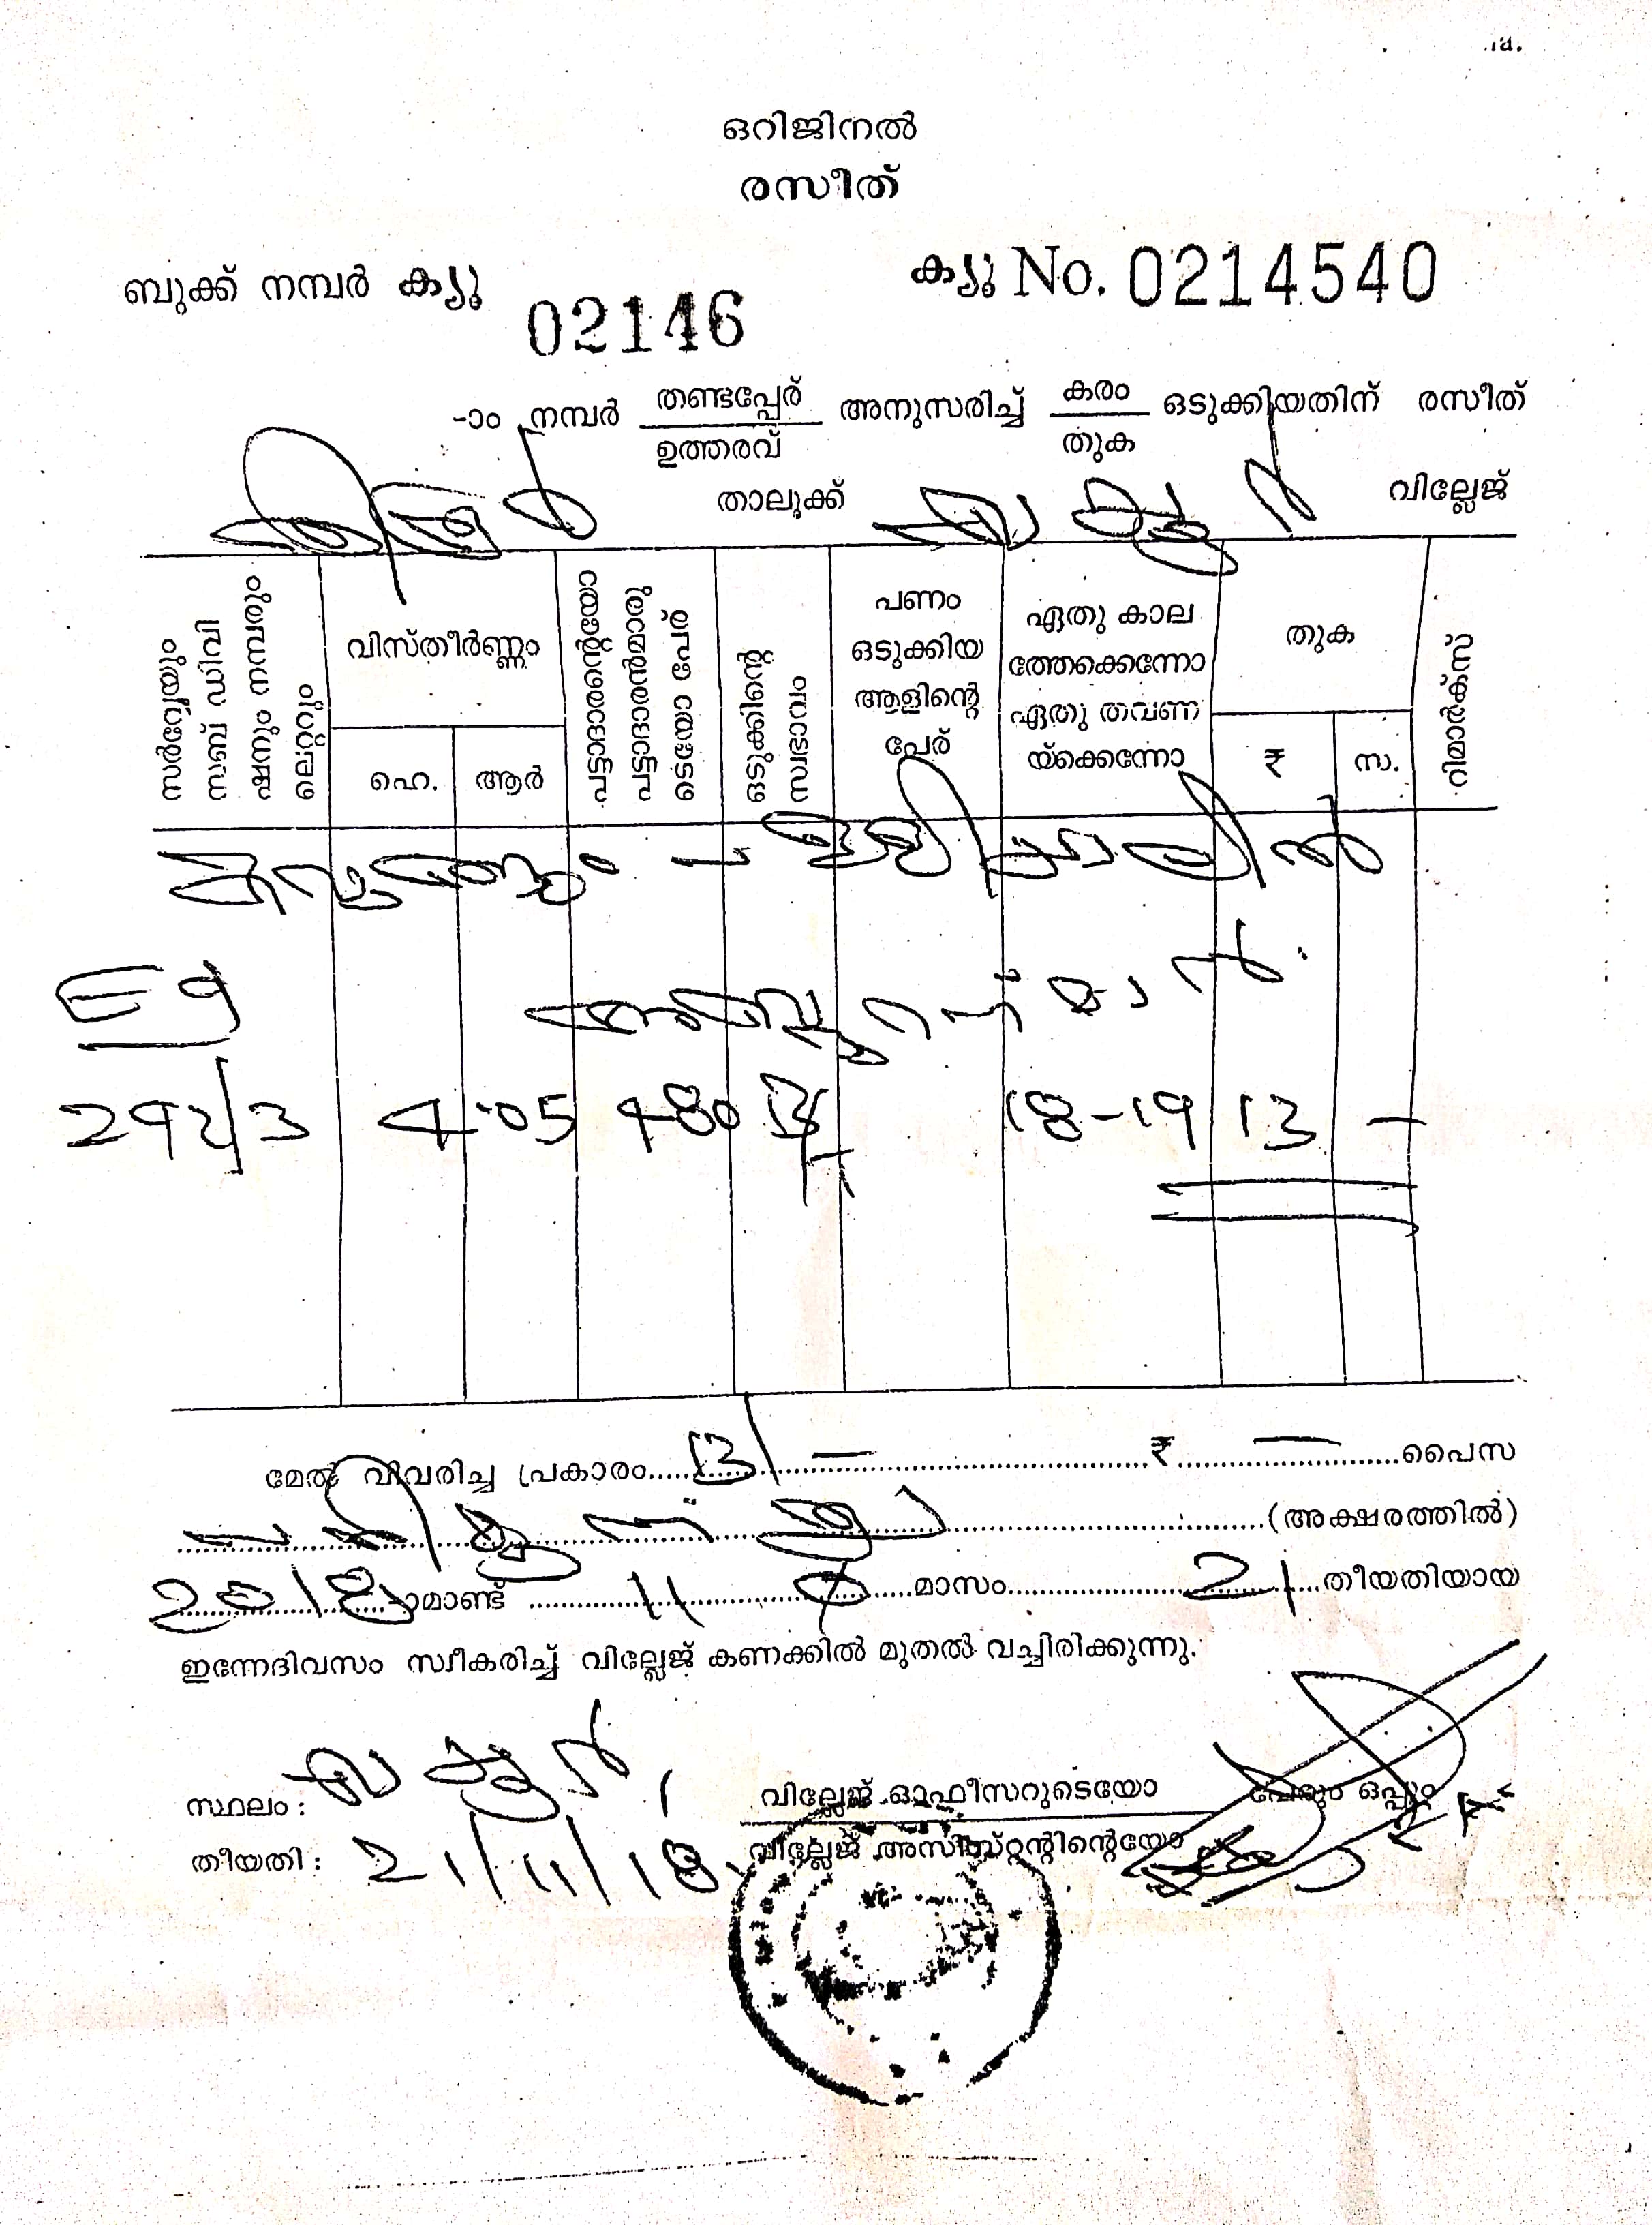 ഒറിജിനൽ
രസീത്
ബുക്ക് നമ്പർ ക്യൂ 02146 ക്യൂ No. 0214540
-ാം നമ്പർ തണ്ടപ്പേര് അനുസരിച്ച് കരം ഒടുക്കിയതിന് രസീത്
ഉത്തരവ് തുക
തിരൂർ താലൂക്ക് വില്ലേജ്
സർവ്വേയും സബ് ഡിവിഷനും നമ്പരും ലെറ്ററും
വിസ്തീർണ്ണം
ഹെ. ആർ
പട്ടാദാരന്റെയോ പട്ടാദാരൻമാരുടെയോ പേര്
ഒടുക്കിന്റെ സ്വഭാവം
പണം
ഒടുക്കിയ
ആളിന്റെ
പേര്
ഏതു കാല
ത്തേക്കെന്നോ
ഏതു തവണ
യ്ക്കെന്നോ
തുക
₹ സ.
റിമാർക്സ്
E9
292/3 4.05 480 13/- 18-19 13 –
മേൽ വിവരിച്ച പ്രകാരം 13/ – ₹ – പൈസ
പതിമൂന്ന് രൂപ (അക്ഷരത്തിൽ)
2018 ാമാണ്ട് 11 മാസം 21 തീയതിയായ
ഇന്നേദിവസം സ്വീകരിച്ച് വില്ലേജ് കണക്കിൽ മുതൽ വച്ചിരിക്കുന്നു.
സ്ഥലം :
വില്ലേജ് ഓഫീസറുടെയോ പേരും ഒപ്പും
വില്ലേജ് അസിസ്റ്റന്റിന്റെയോ
തീയതി : 21/11/18